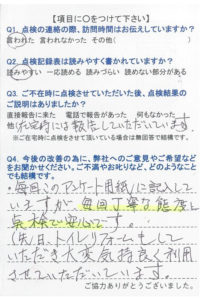 【項目に〇をつけて下さい】
Q1. 点検の連絡の際、訪問時間はお伝えしていますか?
言われた 言われなかった その他( )
Q2. 点検記録表は読みやすく書かれていますか?
読みやすい 一応読める 読みづらい 読めない部分がある
Q3. ご不在時に点検させていただいた後、点検結果の
ご説明はありましたか?
直接報告に来た 電話で報告があった 何もなかった
他(在宅時には報告していただいています。)
※ご在宅時に点検をさせて頂いている場合は無回答で結構です。
Q4. 今後の改善の為に、弊社へのご意見やご希望など
をお聞かせください。ご不満やお叱りなど、どのようなこと
でも結構です。
・毎回このアンケート用紙に記入して
いますが、毎回丁寧な態度と
点検で安心です。
(先)日、トイレリフォームもして
いただき大変気持良く利用
させていただいています。
ご協力ありがとうございました。